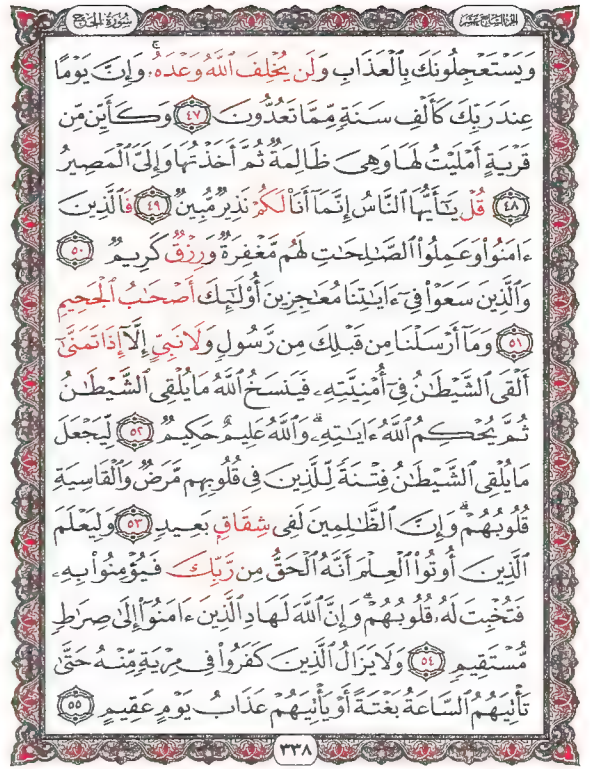 الجزء السابع عشر
سورة الحج
وَيَسْتَعْجِلُونَكَ بِالْعَذَابِ وَلَن يُخْلِفَ اللَّهُ وَعْدَهُۥۚ وَإِنَّ يَوْمًا
عِندَ رَبِّكَ كَأَلْفِ سَنَةٍ مِّمَّا تَعُدُّونَ ٤٧ وَكَأَيِّن مِّن
قَرْيَةٍ أَمْلَيْتُ لَهَا وَهِىَ ظَالِمَةٌ ثُمَّ أَخَذْتُهَا وَإِلَىَّ الْمَصِيرُ
٤٨ قُلْ يَٰٓأَيُّهَا النَّاسُ إِنَّمَآ أَنَا۠ لَكُمْ نَذِيرٌ مُّبِينٌ ٤٩ فَالَّذِينَ
ءَامَنُوا۟ وَعَمِلُوا۟ الصَّٰلِحَٰتِ لَهُم مَّغْفِرَةٌ وَرِزْقٌ كَرِيمٌ ٥٠
وَالَّذِينَ سَعَوْا۟ فِىٓ ءَايَٰتِنَا مُعَٰجِزِينَ أُو۟لَٰٓئِكَ أَصْحَٰبُ الْجَحِيمِ
٥١ وَمَآ أَرْسَلْنَا مِن قَبْلِكَ مِن رَّسُولٍ وَلَا نَبِىٍّ إِلَّآ إِذَا تَمَنَّىٰٓ
أَلْقَى الشَّيْطَٰنُ فِىٓ أُمْنِيَّتِهِۦ فَيَنسَخُ اللَّهُ مَا يُلْقِى الشَّيْطَٰنُ
ثُمَّ يُحْكِمُ اللَّهُ ءَايَٰتِهِۦۗ وَاللَّهُ عَلِيمٌ حَكِيمٌ ٥٢ لِّيَجْعَلَ
مَا يُلْقِى الشَّيْطَٰنُ فِتْنَةً لِّلَّذِينَ فِى قُلُوبِهِم مَّرَضٌ وَالْقَاسِيَةِ
قُلُوبُهُمْۗ وَإِنَّ الظَّٰلِمِينَ لَفِى شِقَاقٍۭ بَعِيدٍ ٥٣ وَلِيَعْلَمَ
الَّذِينَ أُوتُوا۟ الْعِلْمَ أَنَّهُ الْحَقُّ مِن رَّبِّكَ فَيُؤْمِنُوا۟ بِهِۦ
فَتُخْبِتَ لَهُۥ قُلُوبُهُمْۗ وَإِنَّ اللَّهَ لَهَادِ الَّذِينَ ءَامَنُوٓا۟ إِلَىٰ صِرَٰطٍ
مُّسْتَقِيمٍ ٥٤ وَلَا يَزَالُ الَّذِينَ كَفَرُوا۟ فِى مِرْيَةٍ مِّنْهُ حَتَّىٰ
تَأْتِيَهُمُ السَّاعَةُ بَغْتَةً أَوْ يَأْتِيَهُمْ عَذَابُ يَوْمٍ عَقِيمٍ ٥٥
٣٣٨